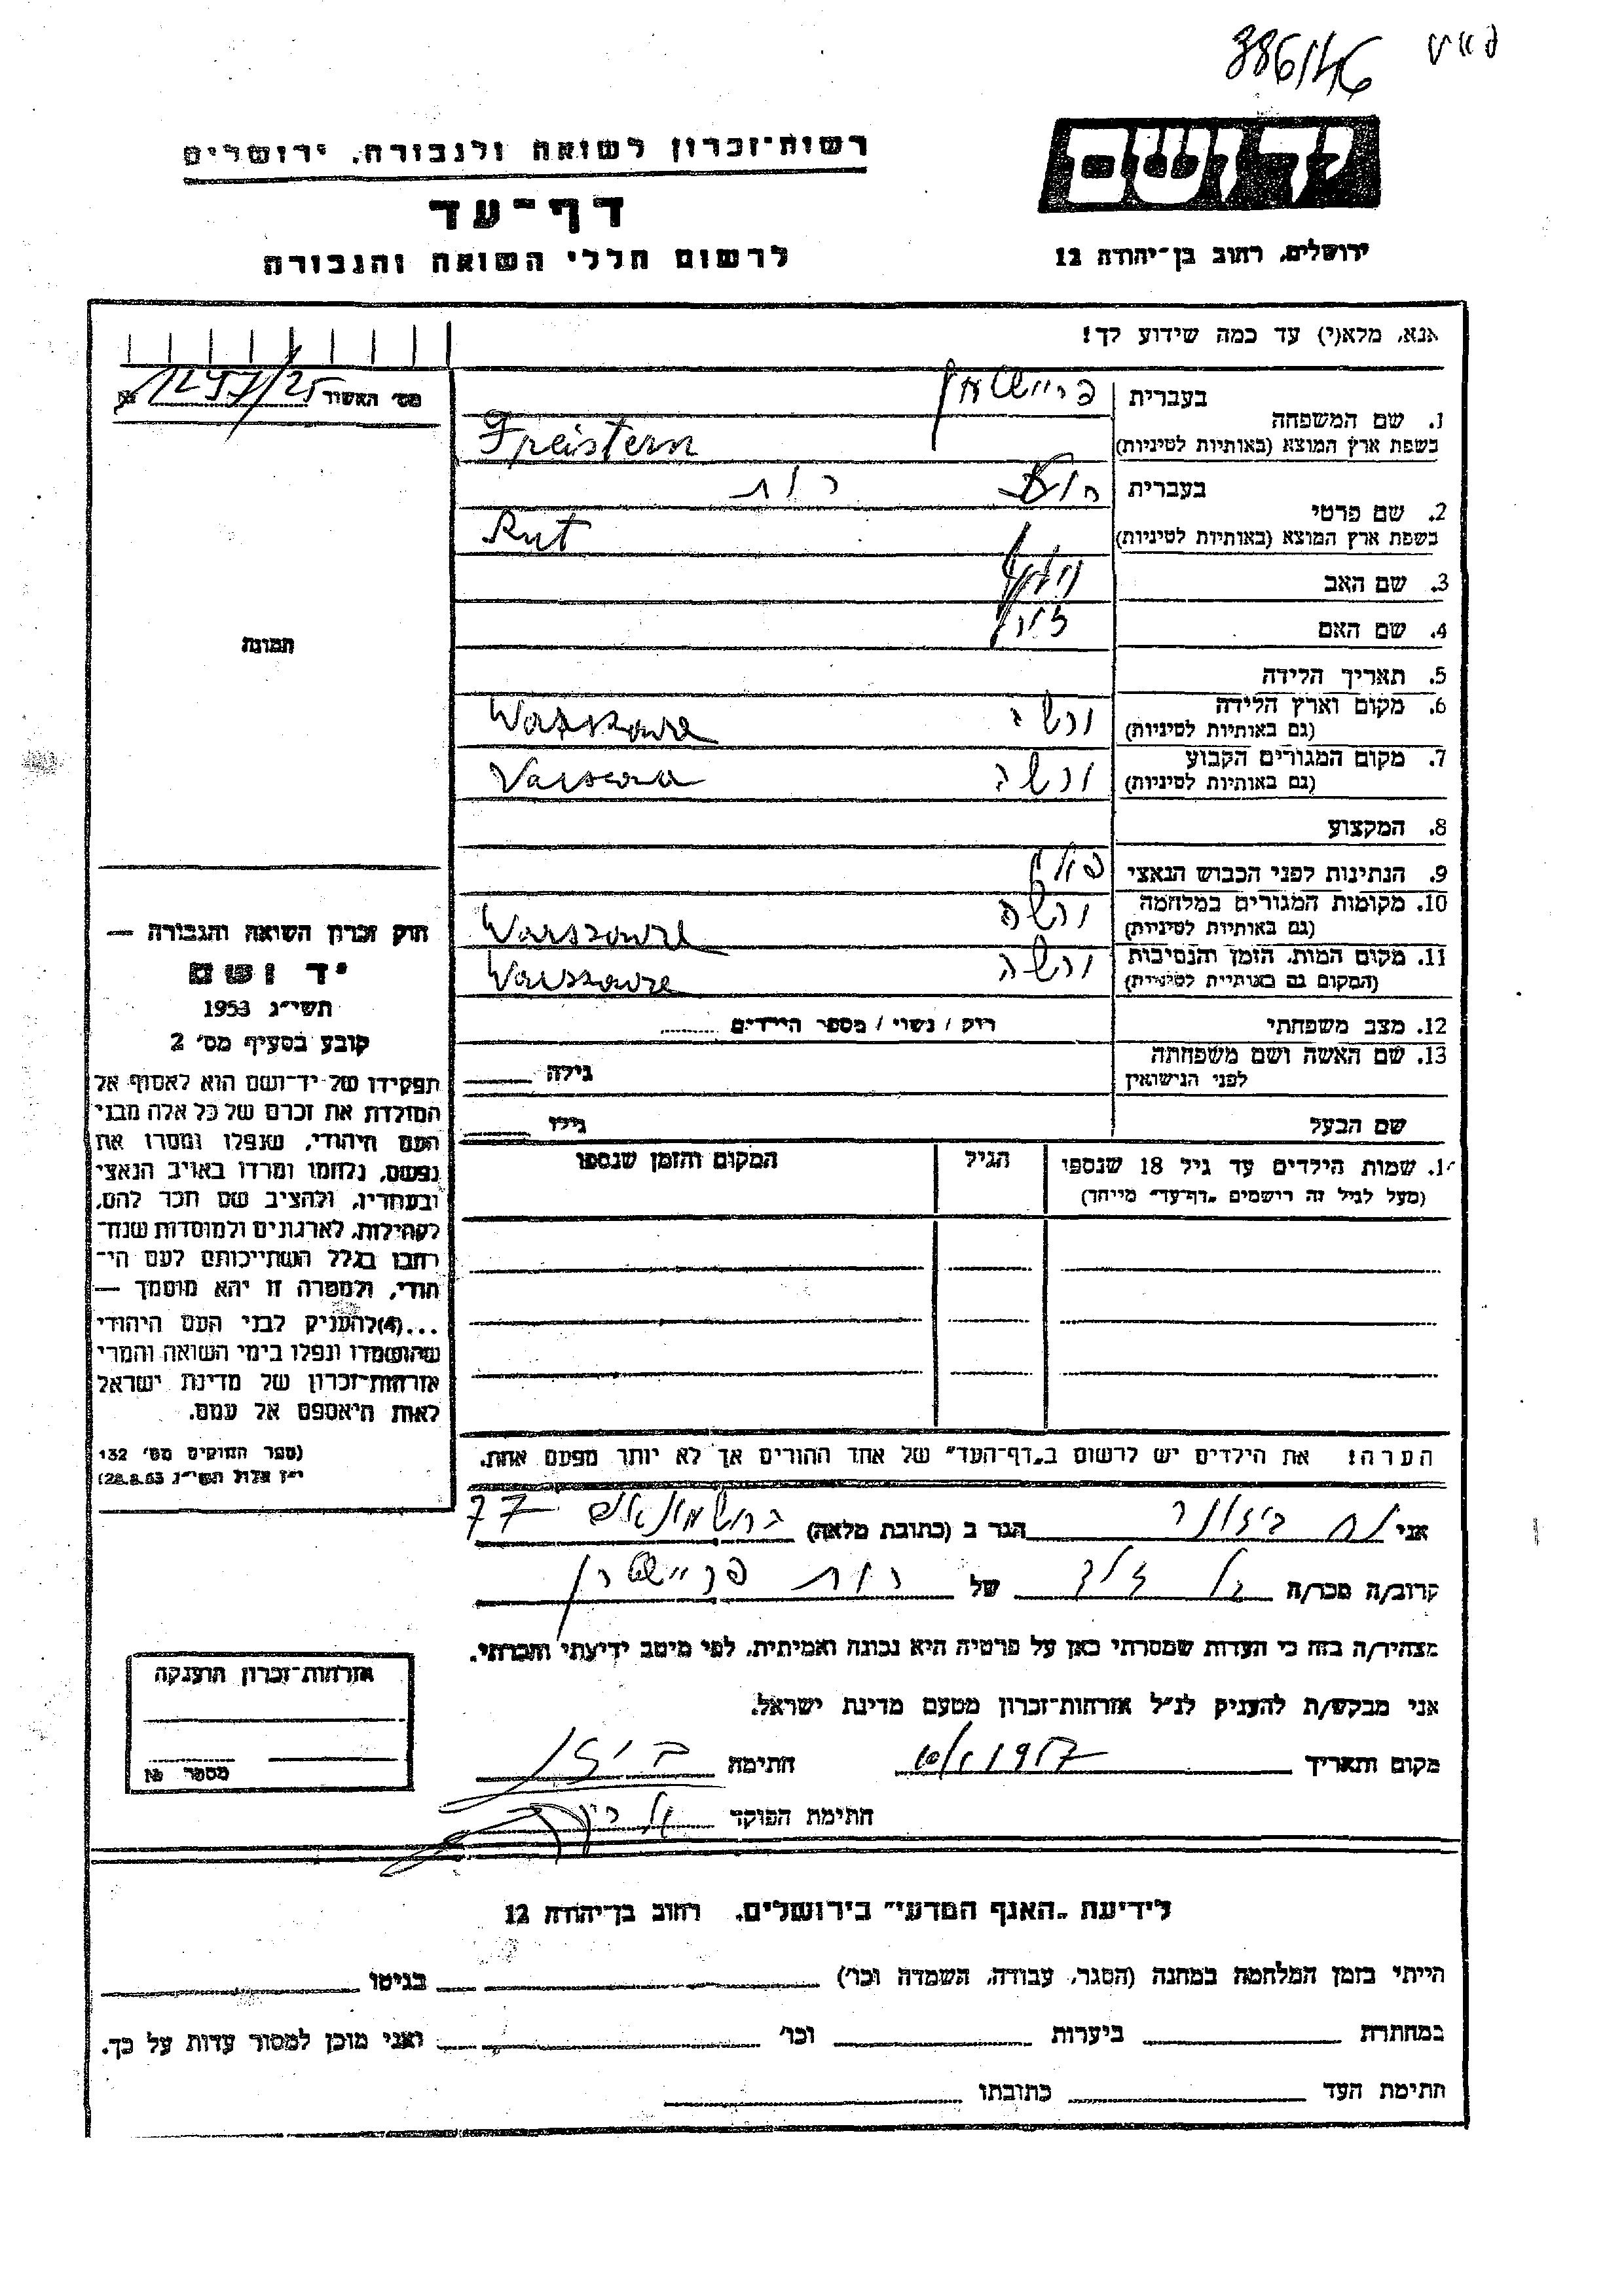 386/46
יד ושם
רשות־זכרון לשואה ולגבורה, ירושלים
דף־עד
לרשום חללי השואה והגבורה
ירושלים, רחוב בן־יהודה 12
אנא, מלא(י) עד כמה שידוע לך!
מס׳ האשור
1. שם המשפחה
בעברית
בשפת ארץ המוצא (באותיות לטיניות) Freistern
2. שם פרטי
בעברית רות
בשפת ארץ המוצא (באותיות לטיניות) Rut
3. שם האב
4. שם האם
תמונה
5. תאריך הלידה
6. מקום וארץ הלידה ורשה Warszawa
(גם באותיות לטיניות)
7. מקום המגורים הקבוע ורשה
(גם באותיות לטיניות)
8. המקצוע
9. הנתינות לפני הכבוש הנאצי פולין
10. מקומות המגורים במלחמה ורשה Warszawa
(גם באותיות לטיניות)
11. מקום המות, הזמן והנסיבות ורשה Warszawa
(המקום גם באותיות לטיניות)
12. מצב משפחתי רוק / נשוי / מספר הילדים
13. שם האשה ושם משפחתה
לפני הנישואין גילה
שם הבעל גילו
14. שמות הילדים עד גיל 18 שנספו הגיל המקום והזמן שנספו
(מעל לגיל זה רישמים „דף־עד״ מייחד)
חוק זכרון השואה והגבורה —
יד ושם
תשי״ג 1953
קובע בסעיף מס׳ 2
תפקידו של יד־ושם הוא לאסוף אל
המולדת את זכרם של כל אלה מבני
העם היהודי, שנפלו ומסרו את
נפשם, נלחמו ומרדו באויב הנאצי
ובעוזריו, ולהציב שם וזכר להם,
לקהילות, לארגונים ולמוסדות שנח־
רחבו בגלל השתייכותם לעם הי־
הודי, ולמטרה זו יהא מוסמך —
...(4)להעניק לבני העם היהודי
שהושמדו ונפלו בימי השואה והמרי
אזרחות־זכרון של מדינת ישראל
לאות היאספם אל עמם.
(ספר החוקים מס׳ 132
י״ז אלול תשי״ג 28.8.53)
הערה: את הילדים יש לרשום ב„דף־העד״ של אחד ההורים אך לא יותר מפעם אחת.
אני הגר ב (כתובת מלאה) 77
קרוב/ה מכר/ה של רות פריישטרן
מצהיר/ה בזה כי העדות שמסרתי כאן על פרטיה היא נכונה ואמיתית, לפי מיטב ידיעתי והכרתי.
אני מבקש/ת להעניק לנ״ל אזרחות־זכרון מטעם מדינת ישראל.
מקום ותאריך 1957 חתימה
חתימת הפוקד
אזרחות־זכרון הוענקה
מספר
לידיעת „האגף המדעי״ בירושלים, רחוב בן־יהודה 12
הייתי בזמן המלחמה במחנה (הסגר, עבודה, השמדה וכו׳) בגיטו
במחתרת ביערות וכו׳ ואני מוכן למסור עדות על כך.
חתימת העד כתובתו